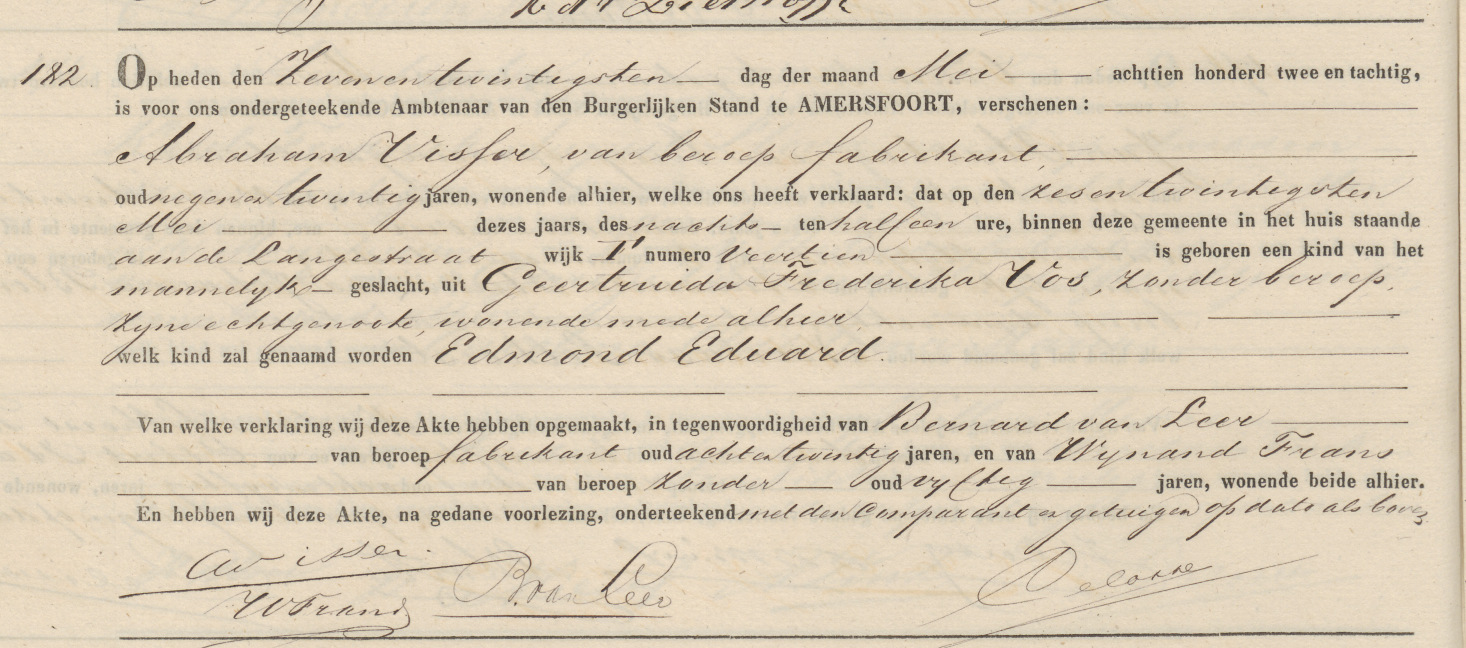 182. Op heden den Zevenentwintigsten dag der maand Mei achttien honderd twee en tachtig,
is voor ons ondergeteekende Ambtenaar van den Burgerlijken Stand te AMERSFOORT, verschenen:
Abraham Visser, van beroep fabrikant,
oud negenentwintig jaren, wonende alhier, welke ons heeft verklaard: dat op den zesentwintigsten
Mei dezes jaars, des nachts ten half een ure, binnen deze gemeente in het huis staande
aan de Langestraat wijk numero Veertien is geboren een kind van het
mannelyk geslacht, uit Geertruida Frederika Vos, zonder beroep,
zyne echtgenoote, wonende mede alhier,
welk kind zal genaamd worden Edmond Eduard.
Van welke verklaring wij deze Akte hebben opgemaakt, in tegenwoordigheid van Bernard van Leer
van beroep fabrikant oud achtentwintig jaren, en van Wynand Frans
van beroep zonder oud vyftig jaren, wonende beide alhier.
En hebben wij deze Akte, na gedane voorlezing, onderteekend met den Comparant en getuigen op dato als boven
AVisser.
B. van Leer
WFrans